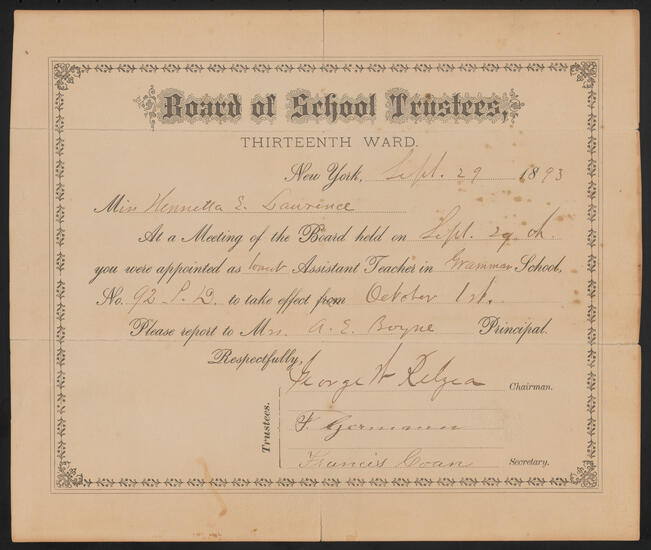 Board of School Trustees,
THIRTEENTH WARD.
New York, Sept. 29 1893
Miss Henrietta E. Lawrence
At a Meeting of the Board held on Sept. 29th
you were appointed as Assistant Teacher in Grammar School,
No. 92 P. D. to take effect from October 1st.
Please report to Mrs. A. E. Boyne Principal.
Respectfully,
George W Relyea Chairman.
Trustees.
F. Germann
Francis Coan Secretary.